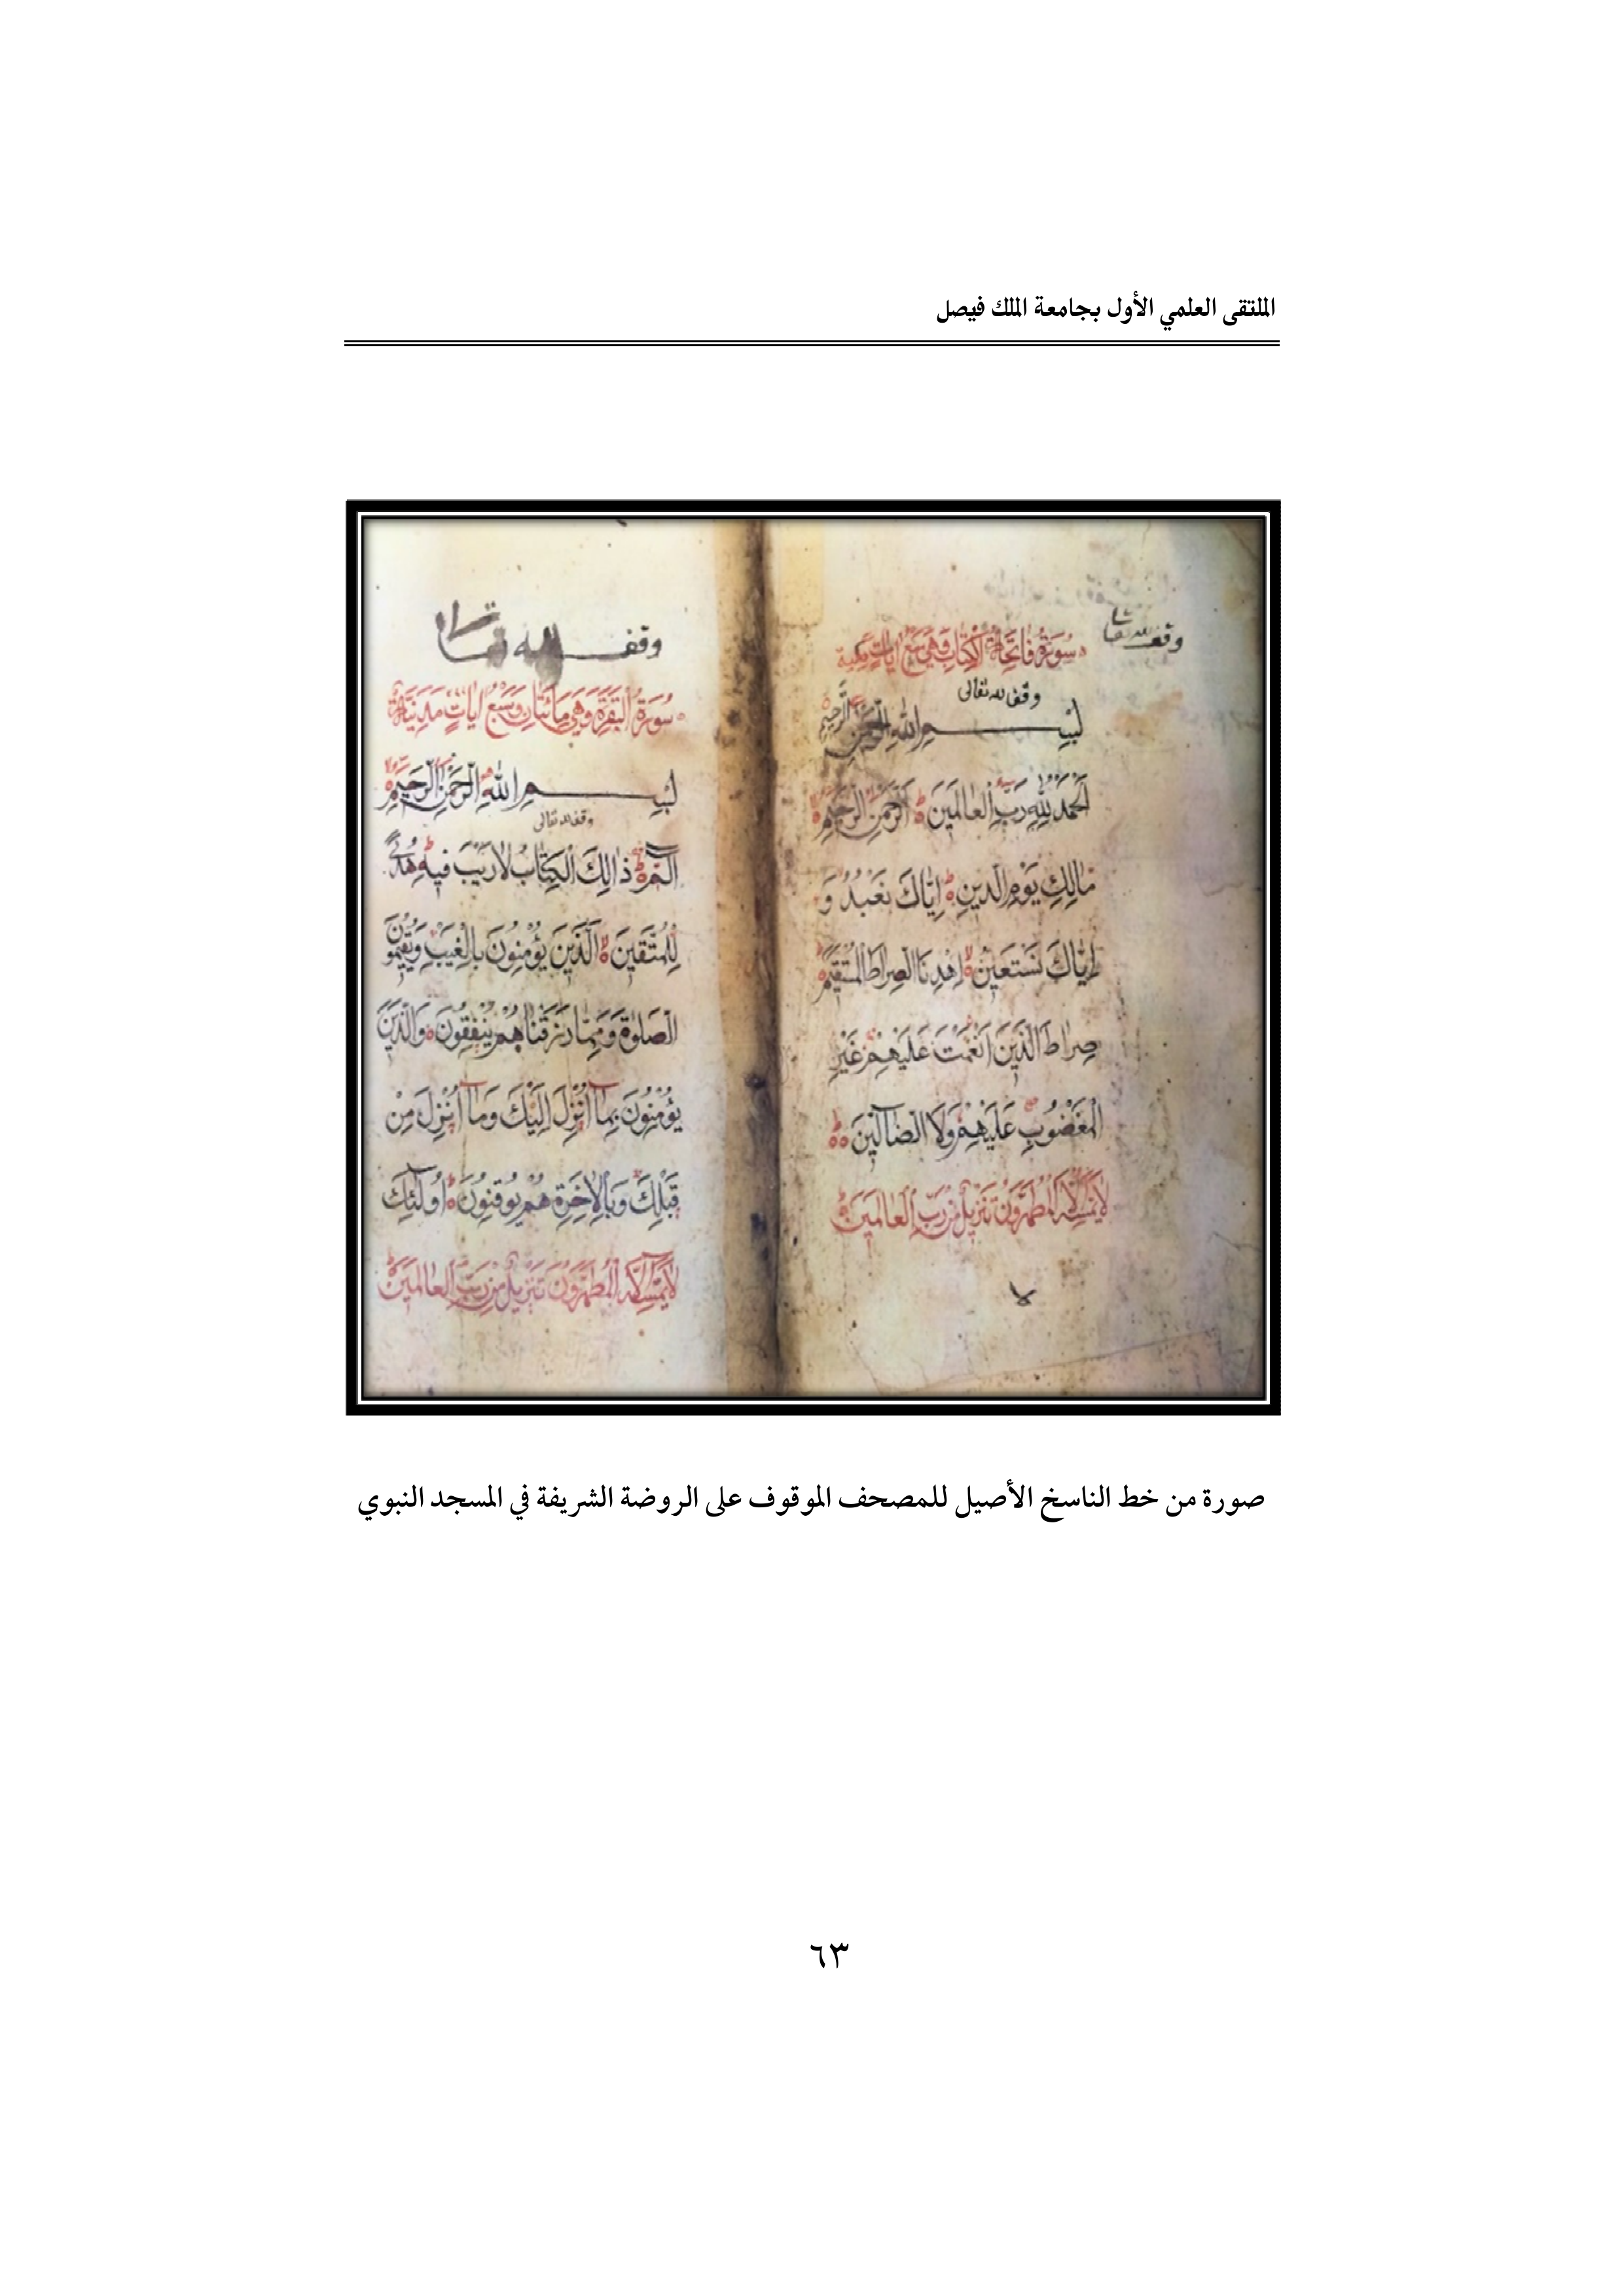 الملتقى العلمي الأول بجامعة الملك فيصل
وقف لله تعالى
سُورَةُ فَاتِحَةِ الْكِتَابِ وَهِيَ سَبْعُ اٰيَاتٍ مَكِّيَّة
وقف لله تعالى
بِسْمِ اللهِ الرَّحْمٰنِ الرَّحِيمِ
اَلْحَمْدُ لِلّٰهِ رَبِّ الْعَالَمِينَ الرَّحْمٰنِ الرَّحِيمِ
مَالِكِ يَوْمِ الدِّينِ اِيَّاكَ نَعْبُدُ وَ
اِيَّاكَ نَسْتَعِينُ اِهْدِنَا الصِّرَاطَ الْمُسْتَقِيمَ
صِرَاطَ الَّذِينَ اَنْعَمْتَ عَلَيْهِمْ غَيْرِ
الْمَغْضُوبِ عَلَيْهِمْ وَلَا الضَّالِّينَ
لَا يَمَسُّهُ اِلَّا الْمُطَهَّرُونَ تَنْزِيلٌ مِنْ رَبِّ الْعَالَمِينَ
وقف لله تعالى
سُورَةُ الْبَقَرَةِ وَهِيَ مِائَتَانِ وَسَبْعُ اٰيَاتٍ مَدَنِيَّة
بِسْمِ اللهِ الرَّحْمٰنِ الرَّحِيمِ
وقف لله تعالى
الٓمٓ ذَالِكَ الْكِتَابُ لَا رَيْبَ فِيهِ هُدًى
لِلْمُتَّقِينَ الَّذِينَ يُؤْمِنُونَ بِالْغَيْبِ وَيُقِيمُونَ
الصَّلٰوةَ وَمِمَّا رَزَقْنَاهُمْ يُنْفِقُونَ وَالَّذِينَ
يُؤْمِنُونَ بِمَا اُنْزِلَ اِلَيْكَ وَمَا اُنْزِلَ مِنْ
قَبْلِكَ وَبِالْاٰخِرَةِ هُمْ يُوقِنُونَ اُولٰئِكَ
لَا يَمَسُّهُ اِلَّا الْمُطَهَّرُونَ تَنْزِيلٌ مِنْ رَبِّ الْعَالَمِينَ
صورة من خط الناسخ الأصيل للمصحف الموقوف على الروضة الشريفة في المسجد النبوي
٦٣